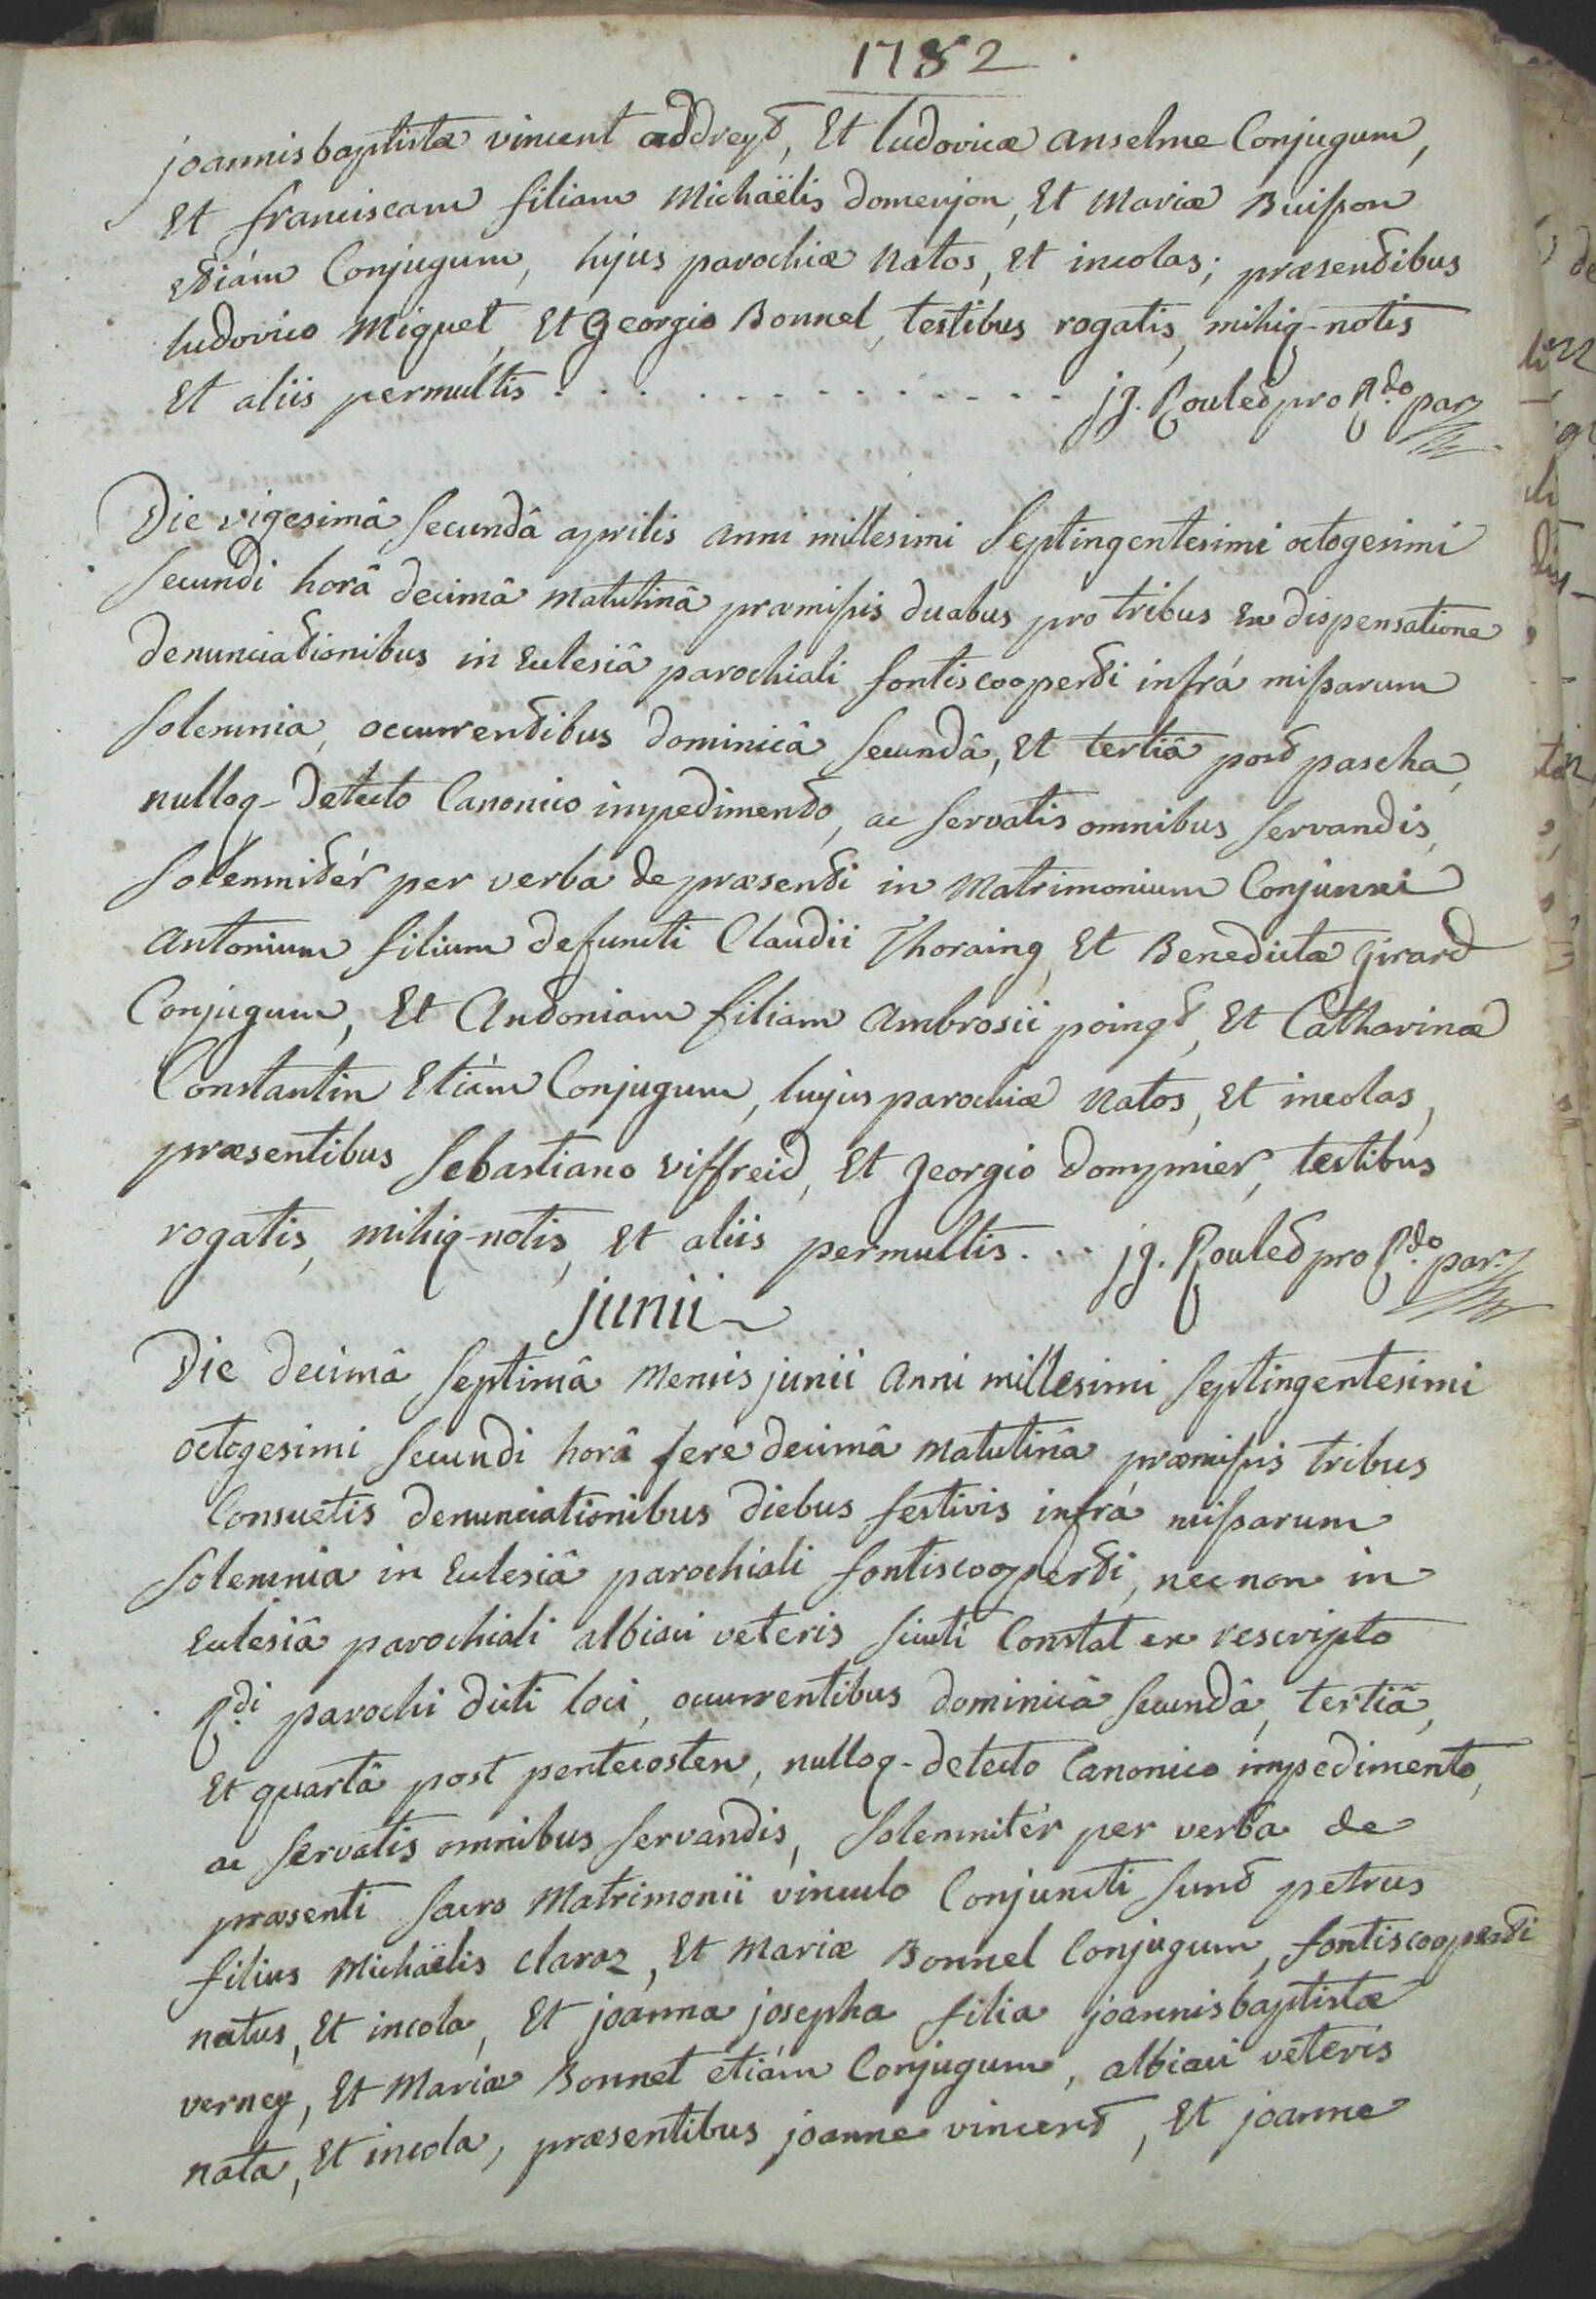 1782.
joannis baptistæ vincent addreyt, Et ludovicæ anselme Conjugum,
Et franciscam filiam Michaëlis domenjon, Et Mariæ Buisson
etiám Conjugum, hujus parochiæ natos, Et incolas; præsentibus
ludovico Miquet, Et Georgio Bonnel, testibus rogatis, mihiq-notis
Et aliis permultis . . . . . . . . . . . . jg. Roulet pro Rdo. par.
Die vigesimâ secundâ aprilis anni millesimi septingentesimi octogesimi
secundi horâ decimâ matutinâ præmissis duabus pro tribus ex dispensatione
denunciationibus in Ecclesiâ parochiali fontiscooperti infrà missarum
solemnia, occurrentibus dominicâ secundâ, Et tertiâ post pascha,
nulloq-detecto Canonico impedimento, ac servatis omnibus servandis,
solemnitér per verba de præsenti in Matrimonium Conjunxi
antonium filium defuncti Claudii Thoraing, Et Benedictæ girard
Conjugum, Et Antoniam filiam Ambrosii poingt, Et Catharinæ
Constantin Etiám Conjugum, hujus parochiæ natos, Et incolas,
præsentibus sebastiano viffreid, Et georgio dompmier, testibus
rogatis, mihiq-notis, Et aliis permultis. . . jg. Roulet pro Rdo. par.
junii
Die decimâ septimâ Mensis junii anni millesimi septingentesimi
octogesimi secundi horâ fere decimâ matutinâ præmissis tribus
Consuetis denunciationibus diebus festivis infrà missarum
solemnia in Ecclesiâ parochiali fontiscooperti, necnon in
Ecclesiâ parochiali albiaci veteris sicuti Constat ex rescripto
Rdi. parochi dicti loci, occurrentibus dominicâ secundâ, tertiâ,
Et quartâ post pentecosten, nulloq-detecto Canonico impedimento,
ac servatis omnibus servandis, solemnitér per verba de
præsenti sacro Matrimonii vinculo Conjuncti sunt petrus
filius Michaëlis claraz, Et Mariæ Bonnel Conjugum, fontiscooperti
natus, Et incola, Et joanna josepha filia joannis baptistæ
verney, Et Mariæ Bonnet etiám Conjugum, albiaci veteris
nata, Et incola, præsentibus joanne vincent, Et joanne